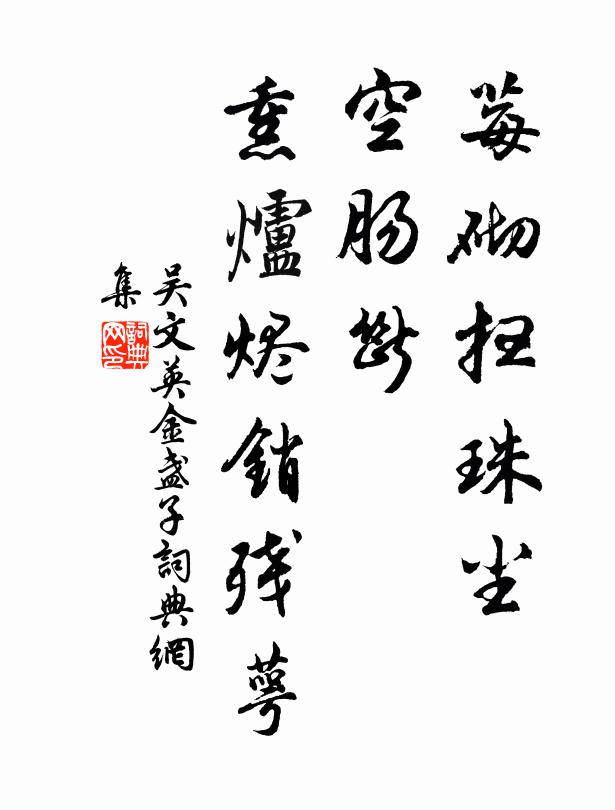 莓砌扫珠尘
空肠断
熏爐烬銷残萼
吴文英金盏子詞典網
集
詞典网印